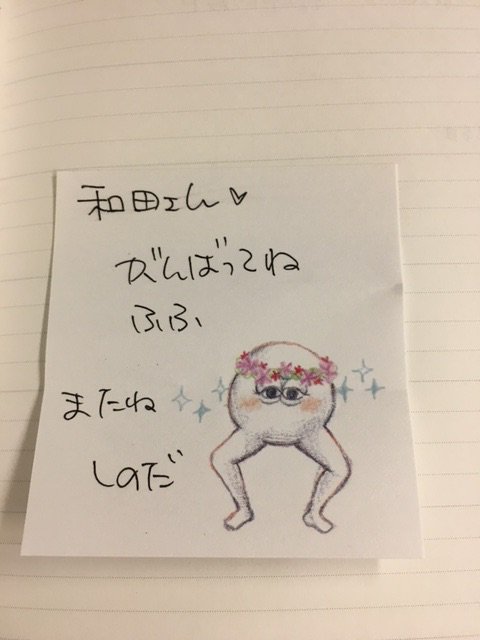 和田さん♡
がんばってね
ふふ
またね
しのだ